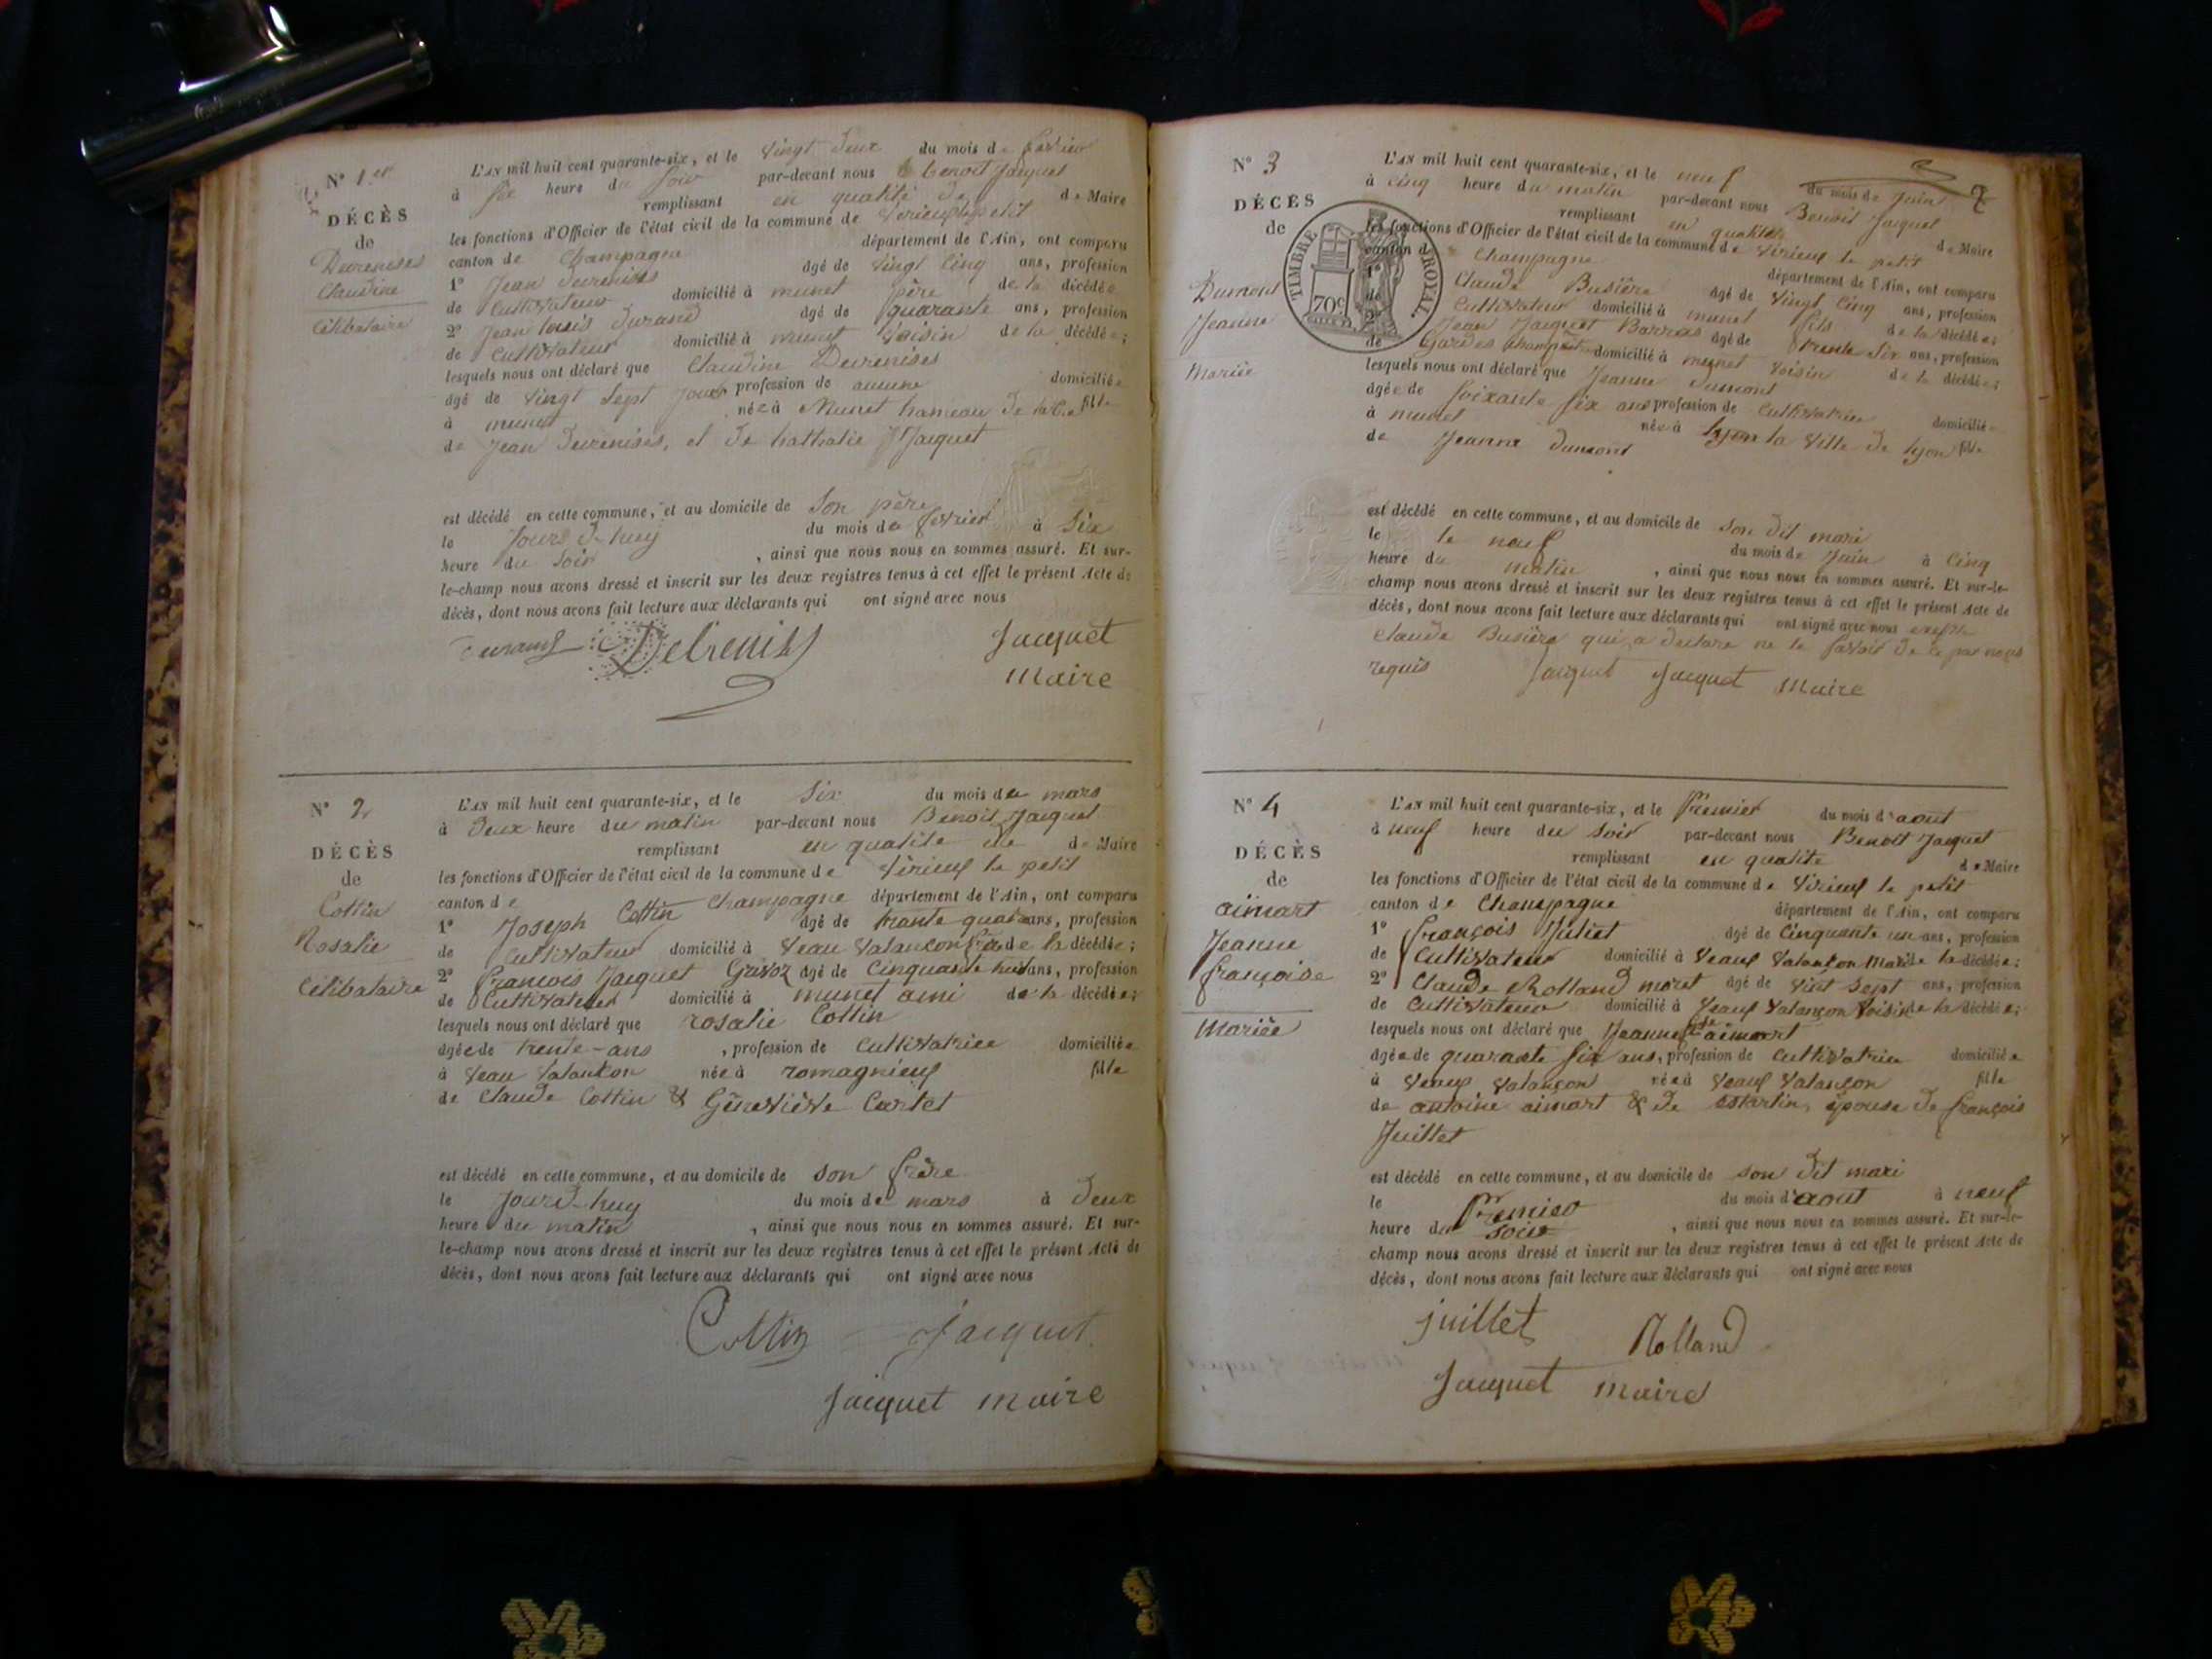 N° 1er
DÉCÈS
de
Devrenises
Claudine
Célibataire
L'AN mil huit cent quarante-six, et le vingt deux du mois de fevrier
à six heure du soir par-devant nous benoit Jacquet
remplissant en qualité de de Maire
les fonctions d'Officier de l'état civil de la commune de Virieux le petit
canton de Champagne département de l'Ain, ont comparu
1° Jean Devrenises âgé de vingt cinq ans, profession
de Cultivateur domicilié à munet père de la décédée
2° Jean louis Durand âgé de quarante ans, profession
de Cultivateur domicilié à munet voisin de la décédée;
lesquels nous ont déclaré que Claudine Devrenises
âgé de vingt sept jours profession de aucune domiciliée
à munet née à Munet hameau de fille
de Jean Devrenises, et de Nathalie Jacquet
est décédé en cette commune, et au domicile de son père
le jourd-huy du mois de fevrier à six
heure du soir , ainsi que nous nous en sommes assuré. Et sur-
le-champ nous avons dressé et inscrit sur les deux registres tenus à cet effet le présent Acte de
décès, dont nous avons fait lecture aux déclarants qui ont signé avec nous
Durand Jacquet
Maire
N° 2
DÉCÈS
de
Cottin
Rosalie
Célibataire
L'AN mil huit cent quarante-six, et le six du mois de mars
à deux heure du matin par-devant nous Benoit Jacquet
remplissant en qualite de de Maire
les fonctions d'Officier de l'état civil de la commune de Virieux le petit
canton de Champagne département de l'Ain, ont comparu
1° Joseph Cottin âgé de trante quatre ans, profession
de Cultivateur domicilié à Veau Valançon de la décédée;
2° francois Jacquet Gravoz âgé de Cinquante huit ans, profession
de Cultivateur domicilié à munet ami de la décédée;
lesquels nous ont déclaré que rosalie Cottin
âgée de trente-ans , profession de cultivatrice domiciliée
à Veau Valançon née à romagnieux fille
de Claude Cottin & Gèneviève Cartet
est décédé en cette commune, et au domicile de son frère
le jourd-huy du mois de mars à deux
heure du matin , ainsi que nous nous en sommes assuré. Et sur-
le-champ nous avons dressé et inscrit sur les deux registres tenus à cet effet le présent Acte de
décès, dont nous avons fait lecture aux déclarants qui ont signé avec nous
Cottin Jacquet
Jacquet maire
N° 3
DÉCÈS
de
Dumont
Jeanne
Mariée
TIMBRE ROYAL.
70c
L'AN mil huit cent quarante-six, et le neuf du mois de Juin
à cinq heure du matin par-devant nous Benoit Jacquet
remplissant en qualité de Maire
les fonctions d'Officier de l'état civil de la commune de Virieux le petit
canton de Champagne département de l'Ain, ont comparu
1° Claude Busière âgé de vingt cinq ans, profession
de Cultivateur domicilié à munet fils de la décédée;
2° Jean Jacquet Barras âgé de trente six ans, profession
de Gardes Champetre domicilié à munet voisin de la décédée;
lesquels nous ont déclaré que Jeanne dumont
âgée de soixante six ans profession de Cultivatrice domiciliée
à munet née à lyon la ville de lyon fille
de Jeanne dumont
est décédé en cette commune, et au domicile de son dit mari
le le neuf du mois de Juin à cinq
heure du matin , ainsi que nous nous en sommes assuré. Et sur-le-
champ nous avons dressé et inscrit sur les deux registres tenus à cet effet le présent Acte de
décès, dont nous avons fait lecture aux déclarants qui ont signé avec nous excepté
Claude Busière qui a declare ne le savoir de ce par nous
requis Jacquet Jacquet Maire
N° 4
DÉCÈS
de
aimart
Jeanne
françoise
Mariée
L'AN mil huit cent quarante-six, et le Premier du mois d'aout
à neuf heure du soir par-devant nous Benoit Jacquet
remplissant en qualite de Maire
les fonctions d'Officier de l'état civil de la commune de Virieux le petit
canton de Champagne département de l'Ain, ont comparu
1° françois Juliet âgé de Cinquante un ans, profession
de Cultivateur domicilié à Veaux Valançon Mari de la décédée;
2° Claude Rolland moret âgé de vint sept ans, profession
de Cultivateur domicilié à Veaux Valançon voisin de la décédée;
lesquels nous ont déclaré que Jeanne aimart
âgée de quarante six ans, profession de cultivatrice domiciliée
à Veaux Valançon née à Veaux Valançon fille
de antoine aimart & de Martin, èpouse de françois
Juillet
est décédé en cette commune, et au domicile de son dit mari
le Premier du mois d'aout à neuf
heure du soir , ainsi que nous nous en sommes assuré. Et sur-le-
champ nous avons dressé et inscrit sur les deux registres tenus à cet effet le présent Acte de
décès, dont nous avons fait lecture aux déclarants qui ont signé avec nous
juillet Rolland
Jacquet maire